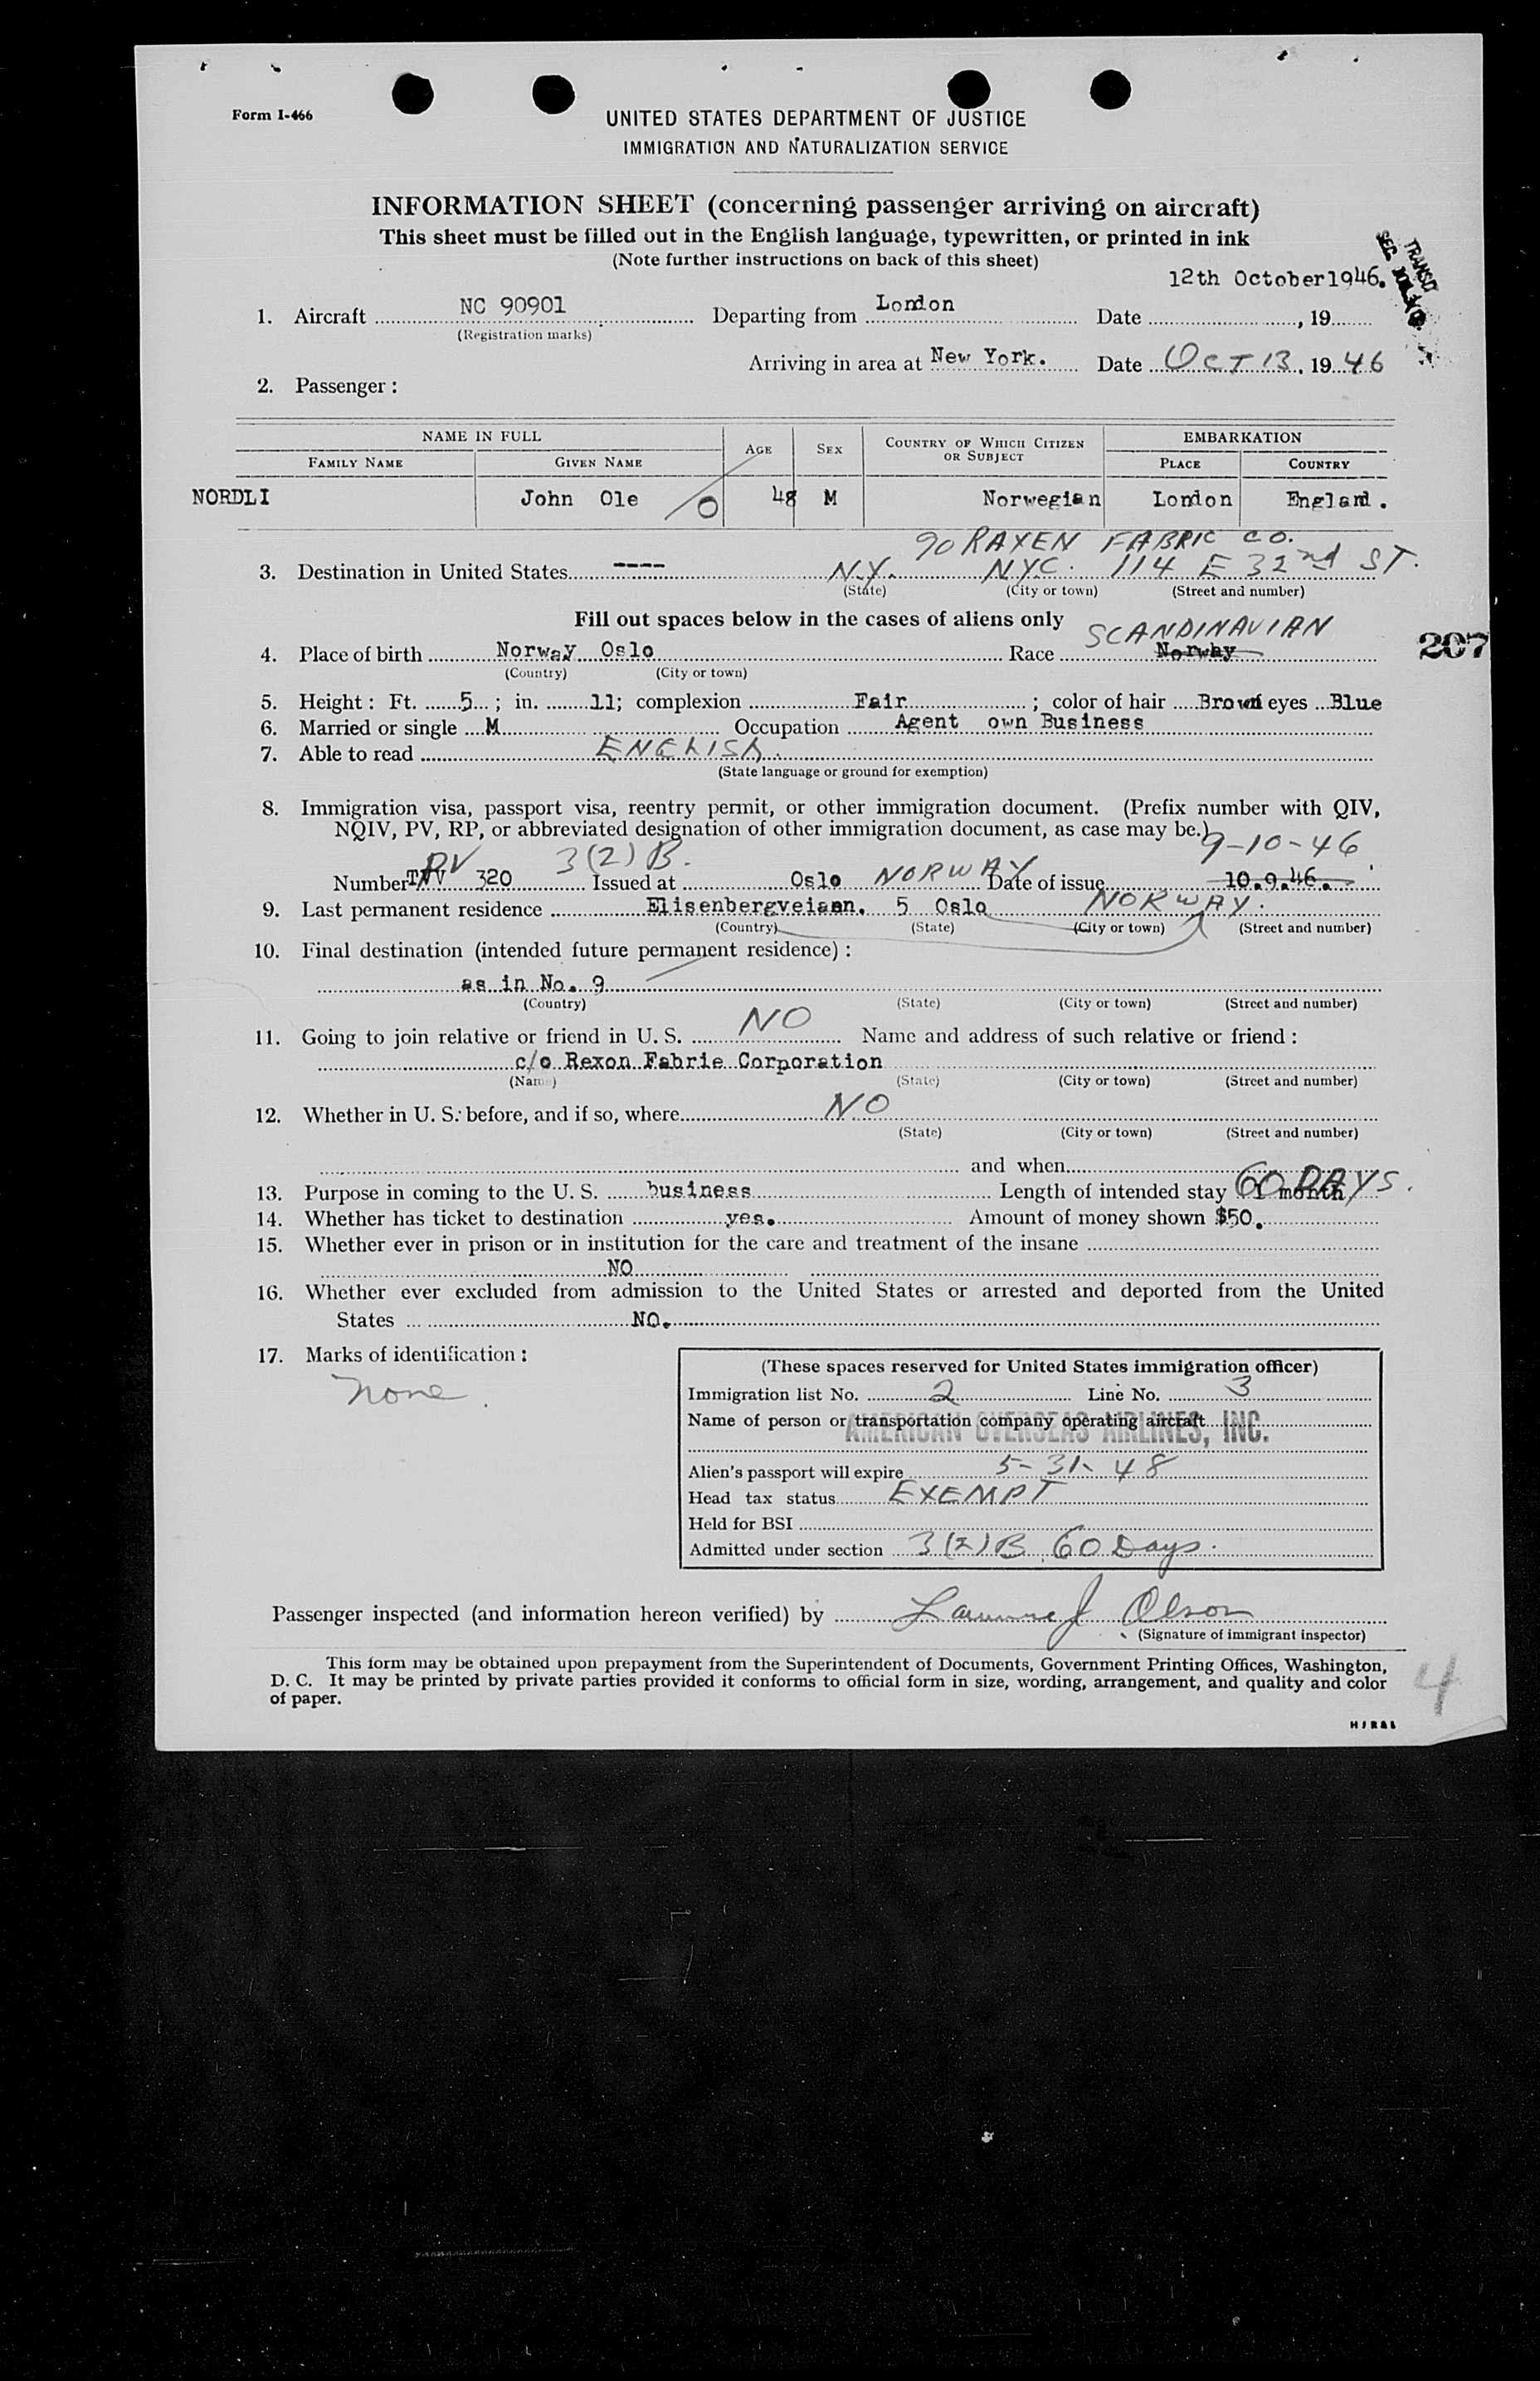 Form I-466
UNITED STATES DEPARTMENT OF JUSTICE
IMMIGRATION AND NATURALIZATION SERVICE
INFORMATION SHEET (concerning passenger arriving on aircraft)
This sheet must be filled out in the English language, typewritten, or printed in ink
(Note further instructions on back of this sheet)
TRANSIT
12th October 1946.
1. Aircraft NC 90901 Departing from London Date , 19
(Registration marks)
Arriving in area at New York. Date OCT 13, 1946
2. Passenger:
NAME IN FULL AGE SEX COUNTRY OF WHICH CITIZEN OR SUBJECT EMBARKATION
FAMILY NAME GIVEN NAME PLACE COUNTRY
NORDLI John Ole 48 M Norwegian London England.
RAXEN FABRIC CO.
3. Destination in United States ---- N.Y. NYC. 114 E 32nd ST.
(State) (City or town) (Street and number)
Fill out spaces below in the cases of aliens only
SCANDINAVIAN
4. Place of birth Norway Oslo Race Norway
207
(Country) (City or town)
5. Height: Ft. 5; in. 11; complexion Fair; color of hair Brown eyes Blue
6. Married or single M Occupation Agent own Business
7. Able to read ENGLISH.
(State language or ground for exemption)
8. Immigration visa, passport visa, reentry permit, or other immigration document. (Prefix number with QIV,
NQIV, PV, RP, or abbreviated designation of other immigration document, as case may be.)
PV 3(2) B. 9-10-46
Number 320 Issued at Oslo NORWAY Date of issue 10.9.46.
9. Last permanent residence Elisenbergveien. 5 Oslo NORWAY.
(Country) (State) (City or town) (Street and number)
10. Final destination (intended future permanent residence):
as in No. 9
(Country) (State) (City or town) (Street and number)
11. Going to join relative or friend in U. S. NO Name and address of such relative or friend:
c/o Rexon Fabrie Corporation
(Name) (State) (City or town) (Street and number)
12. Whether in U. S. before, and if so, where NO
(State) (City or town) (Street and number)
and when
13. Purpose in coming to the U. S. business Length of intended stay 1 month 60 DAYS.
14. Whether has ticket to destination yes. Amount of money shown $50.
15. Whether ever in prison or in institution for the care and treatment of the insane
NO
16. Whether ever excluded from admission to the United States or arrested and deported from the United
States NO.
17. Marks of identification:
None
(These spaces reserved for United States immigration officer)
Immigration list No. 2 Line No. 3
Name of person or transportation company operating aircraft
AMERICAN OVERSEAS AIRLINES, INC.
Alien's passport will expire 5-31-48
Head tax status EXEMPT
Held for BSI
Admitted under section 3(2)B 60 Days.
Passenger inspected (and information hereon verified) by Lawrence J Olson
(Signature of immigrant inspector)
This form may be obtained upon prepayment from the Superintendent of Documents, Government Printing Offices, Washington,
D. C. It may be printed by private parties provided it conforms to official form in size, wording, arrangement, and quality and color
of paper.
4